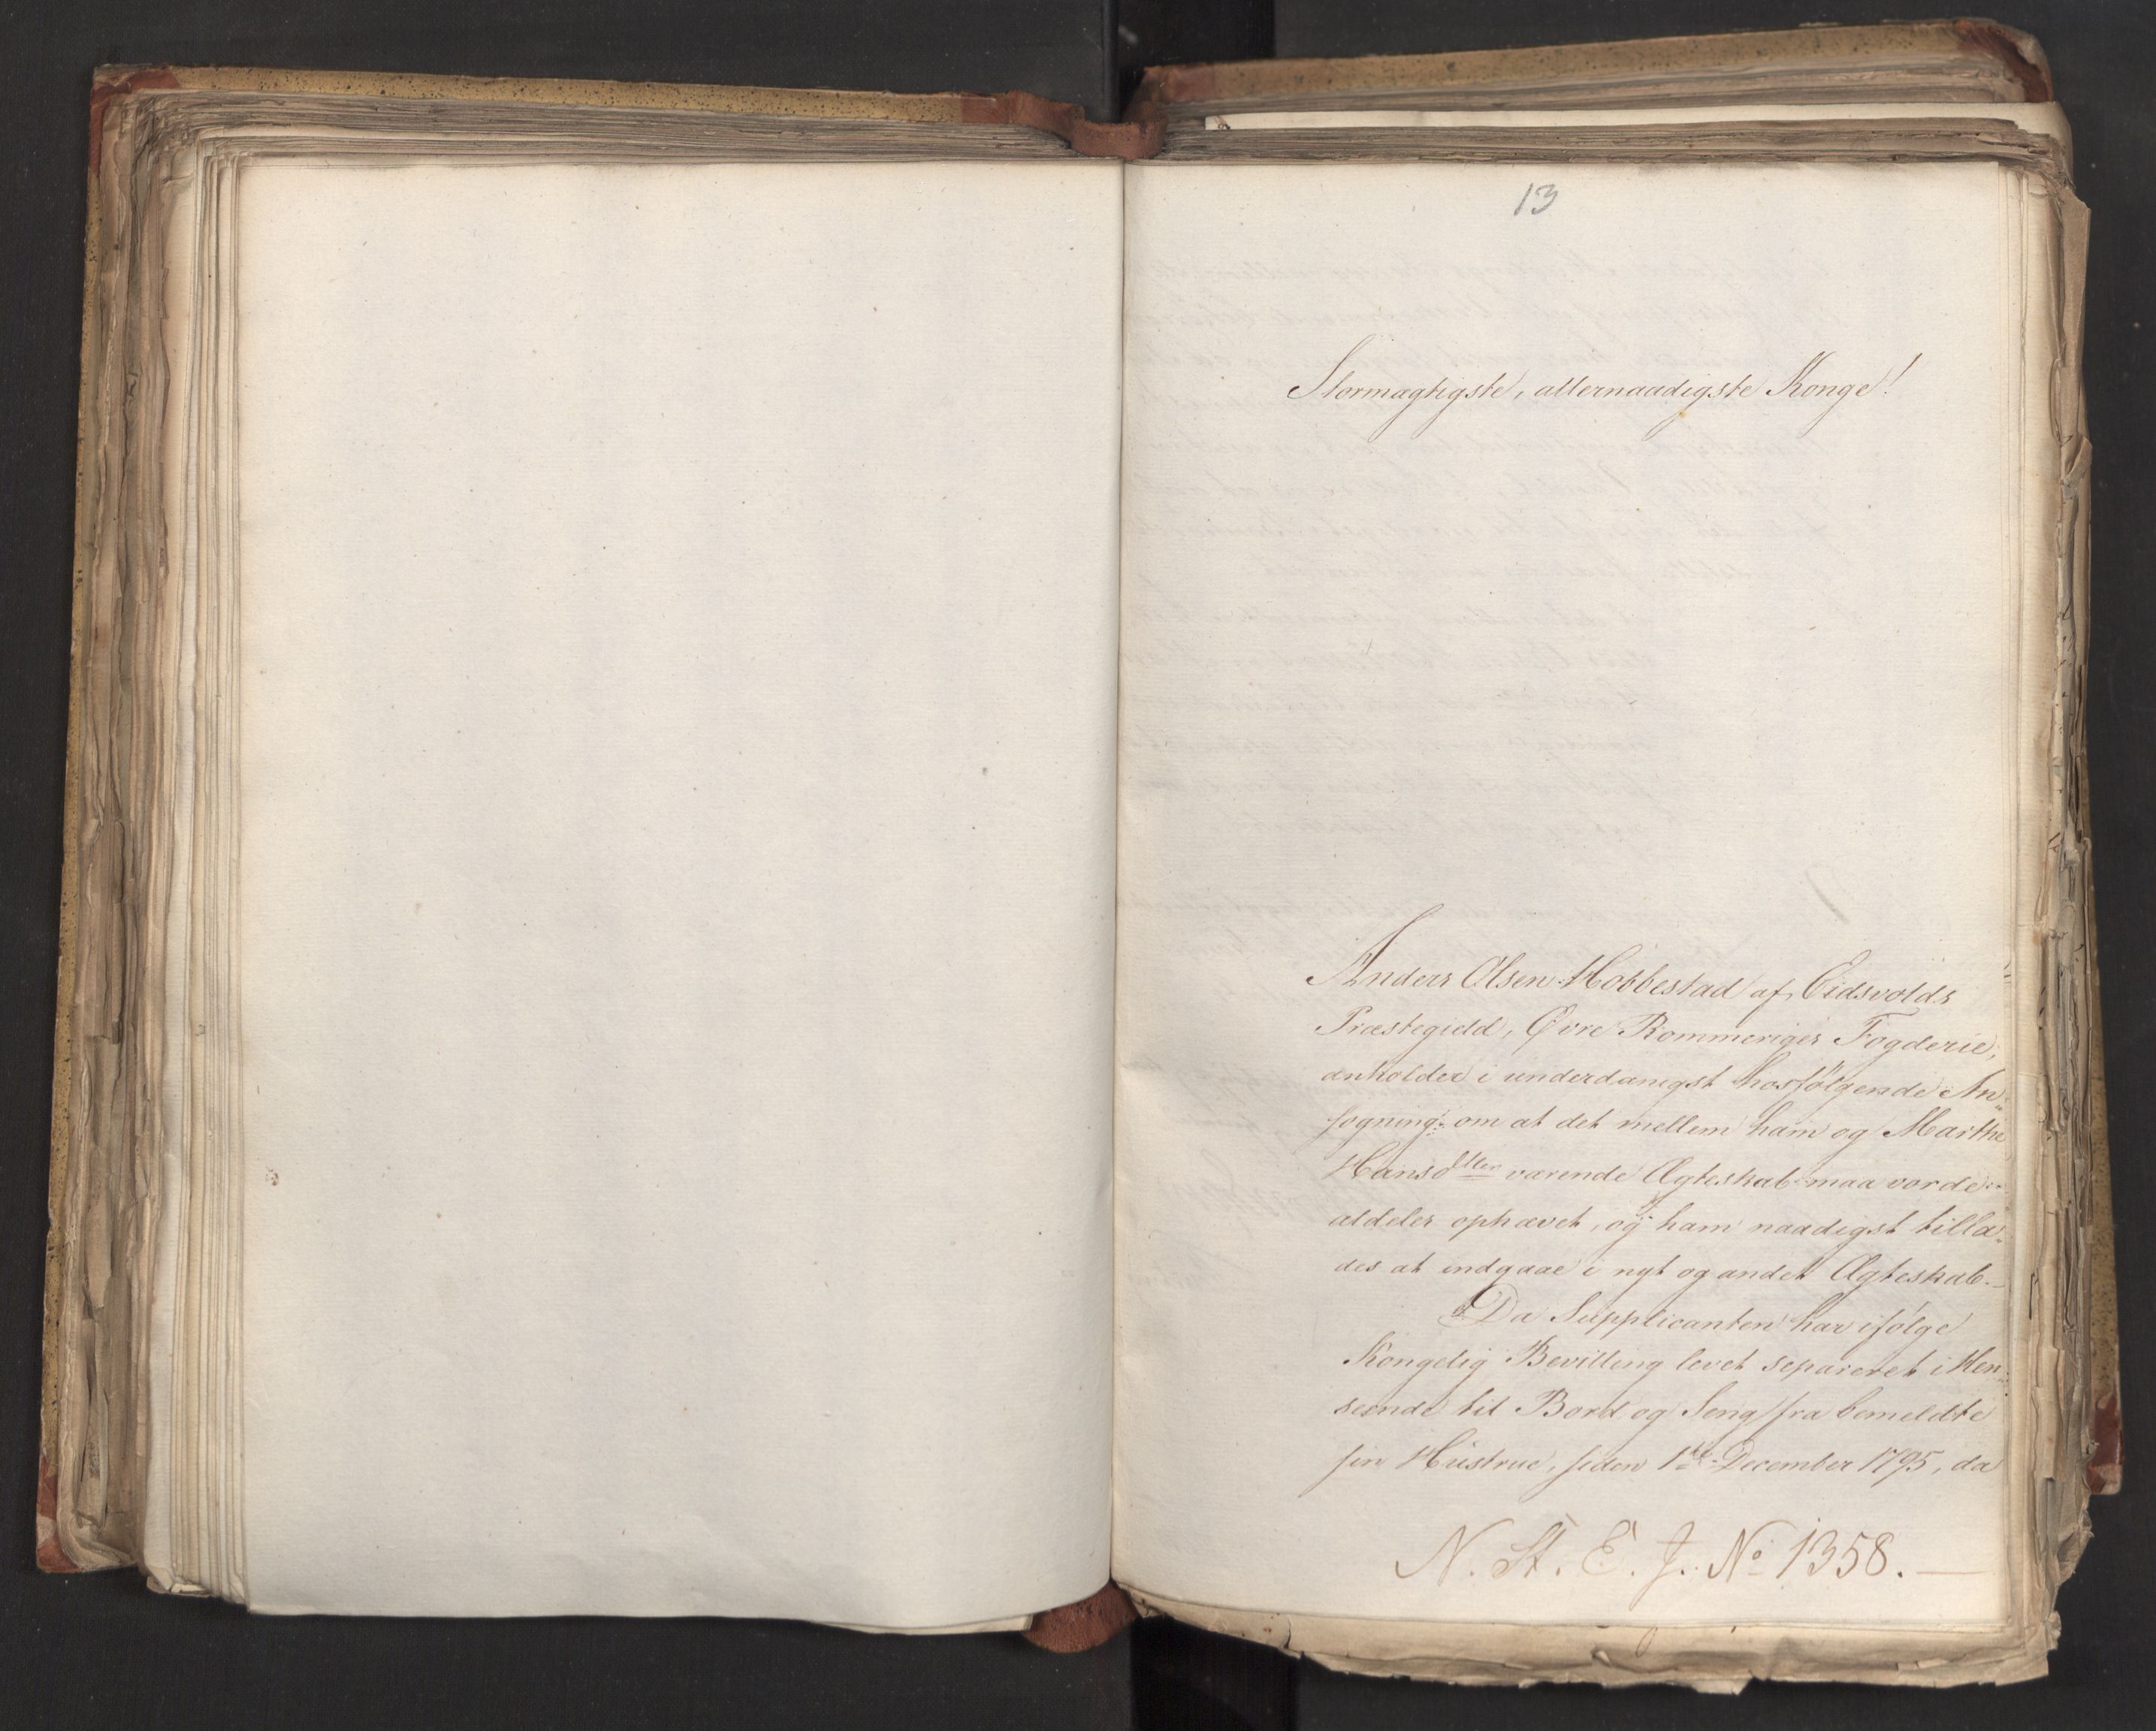 13
Stormægtigste, allernaadigste Konge!
Anders Olsen Hobbestad af Eidsvolds
Præstegield, Øvre Rommeriges Fogderie,
anholder i underdanigst hosfølgende An-
søgning om at det mellem ham og Marthe
Hansdtter værende Ægteskab maa vorde
aldeles ophævet, og ham naadigst tilla-
des at indgaae i nyt og andet Ægteskab.
Da Supplicanten har ifølge
Kongelig Bevilling levet separeret i Hen-
seende til Bord og Seng fra bemeldte
sin Hustrue, siden 1ste December 1795, da
N. St. E. J. No 1358.